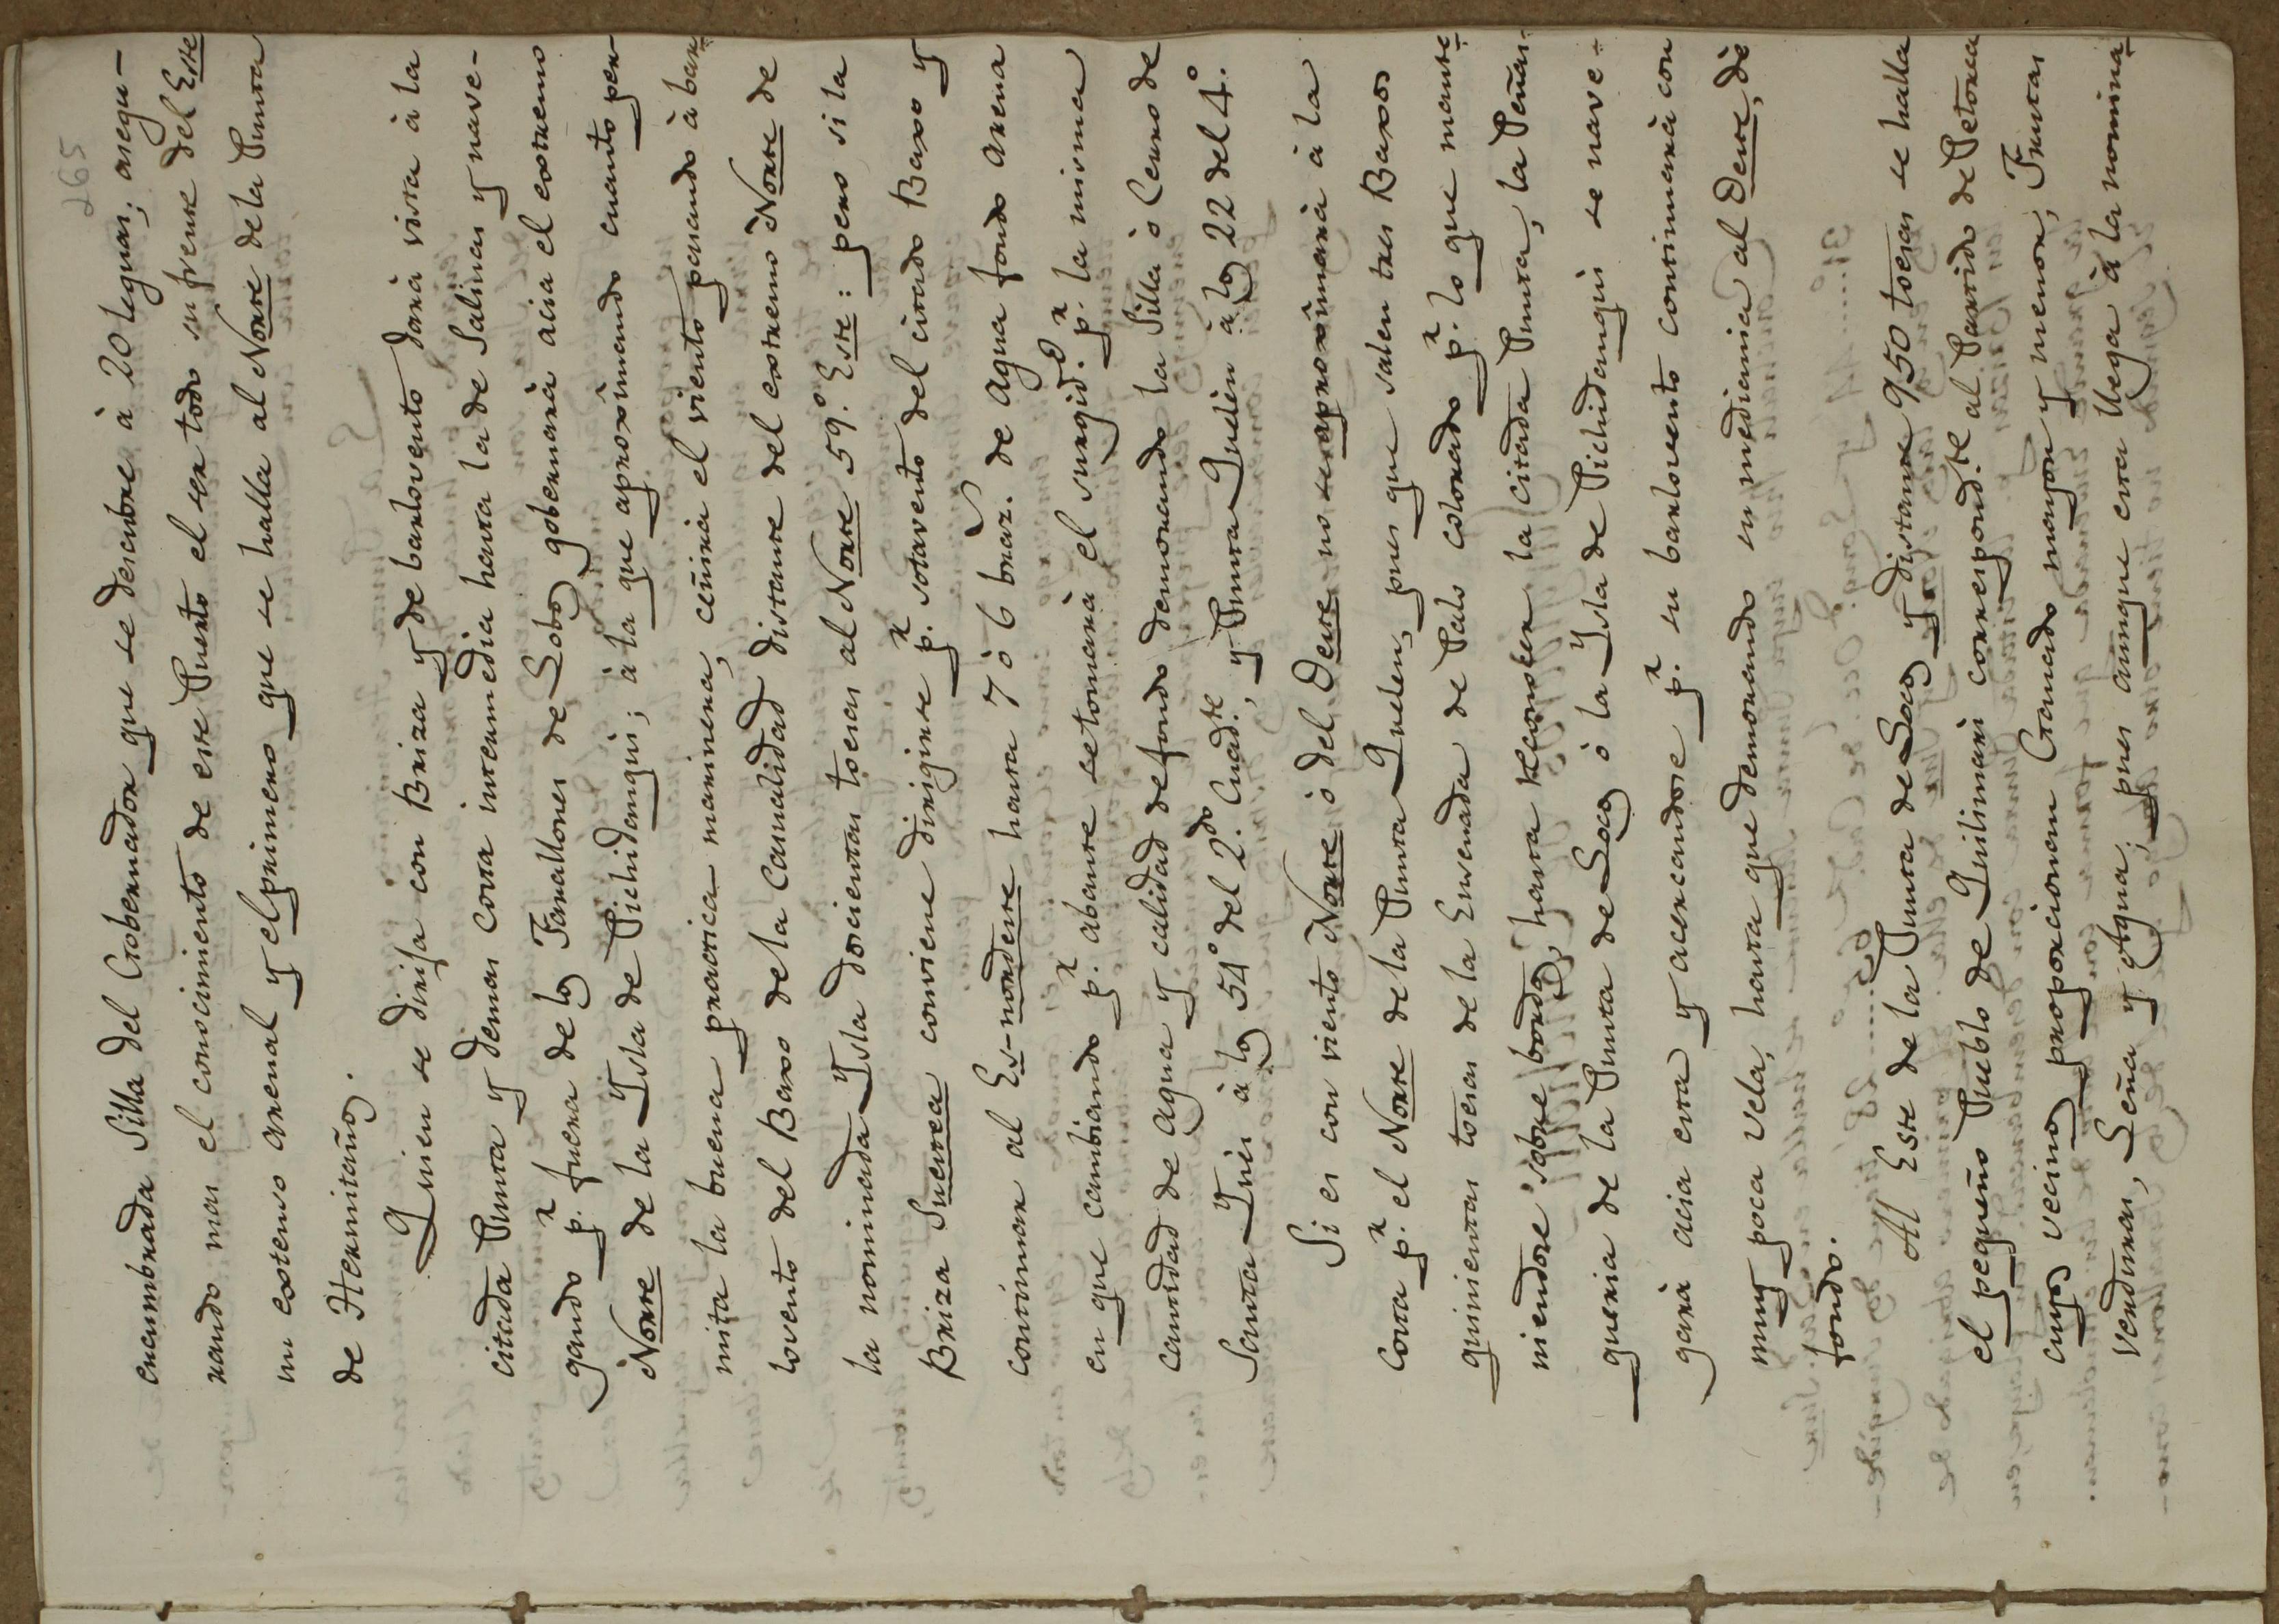 265
encumbrada Silla del Gobernador que se descubre à 20 leguas; asegu-
rando mas el conocimiento de este Puerto el ser todo su frente del Este
un extenso arenal y el primero que se halla al Norte de la Punta
de Hermitaños.
Quien se dirija con Briza y de barlovento darà vista à la
citada Punta y demas costa intermedia hasta la de Salinas y nave-
gando p.r fuera de los Farallones de Lobos gobernarà acia el extremo
Norte de la Ysla de Pichidanqui; à la que aproximando cuanto per-
mita la buena practica marinera, ceñirà el viento pasando à bar-
lovento del Baxo de la Casualidad distante del extremo Norte de
la nominada Ysla docientas toesas al Norte 59.° Este: pero si la
Briza Suestea conviene dirigirse p.r sotavento del citado Baxo y
continuar al Es-nordeste hasta 7 ò 6 braz.s de agua fondo arena
en que cambiando p.r abante se tomarà el surgid.o p.r la misma
cantidad de agua y calidad de fondo demorando la Silla ò Cerro de
Santa Ynès à los 54° del 2.do Cuad.te, y Punta Quelèn à los 22 del 4.°
Si es con viento Norte ò del Oeste no se aproximarà à la
Costa p.r el Norte de la Punta Quelen, pues que salen tres Baxos
quinientas toesas de la Ensenada de Palo colorado p.r lo que mante-
niendose sobre bordos, hasta reconocer la citada Punta, la Peñas-
queria de la Punta de Locos ò la Ysla de Pichidanqui se nave-
garà acia esta y acercandose p.r su barlovento continuarà con
muy poca vela, hasta que demorando su mediania al Oeste, dè
fondo.
Al Este de la Punta de Locos y distante 950 toesas se halla
el pequeño Pueblo de Quilimarì correspond.te al Partido de Petorca
cuyos vecinos proporcionan Ganado mayor y menor, Frutas
Verduras, Leña y Agua; pues aunque esta llega à la nomina-